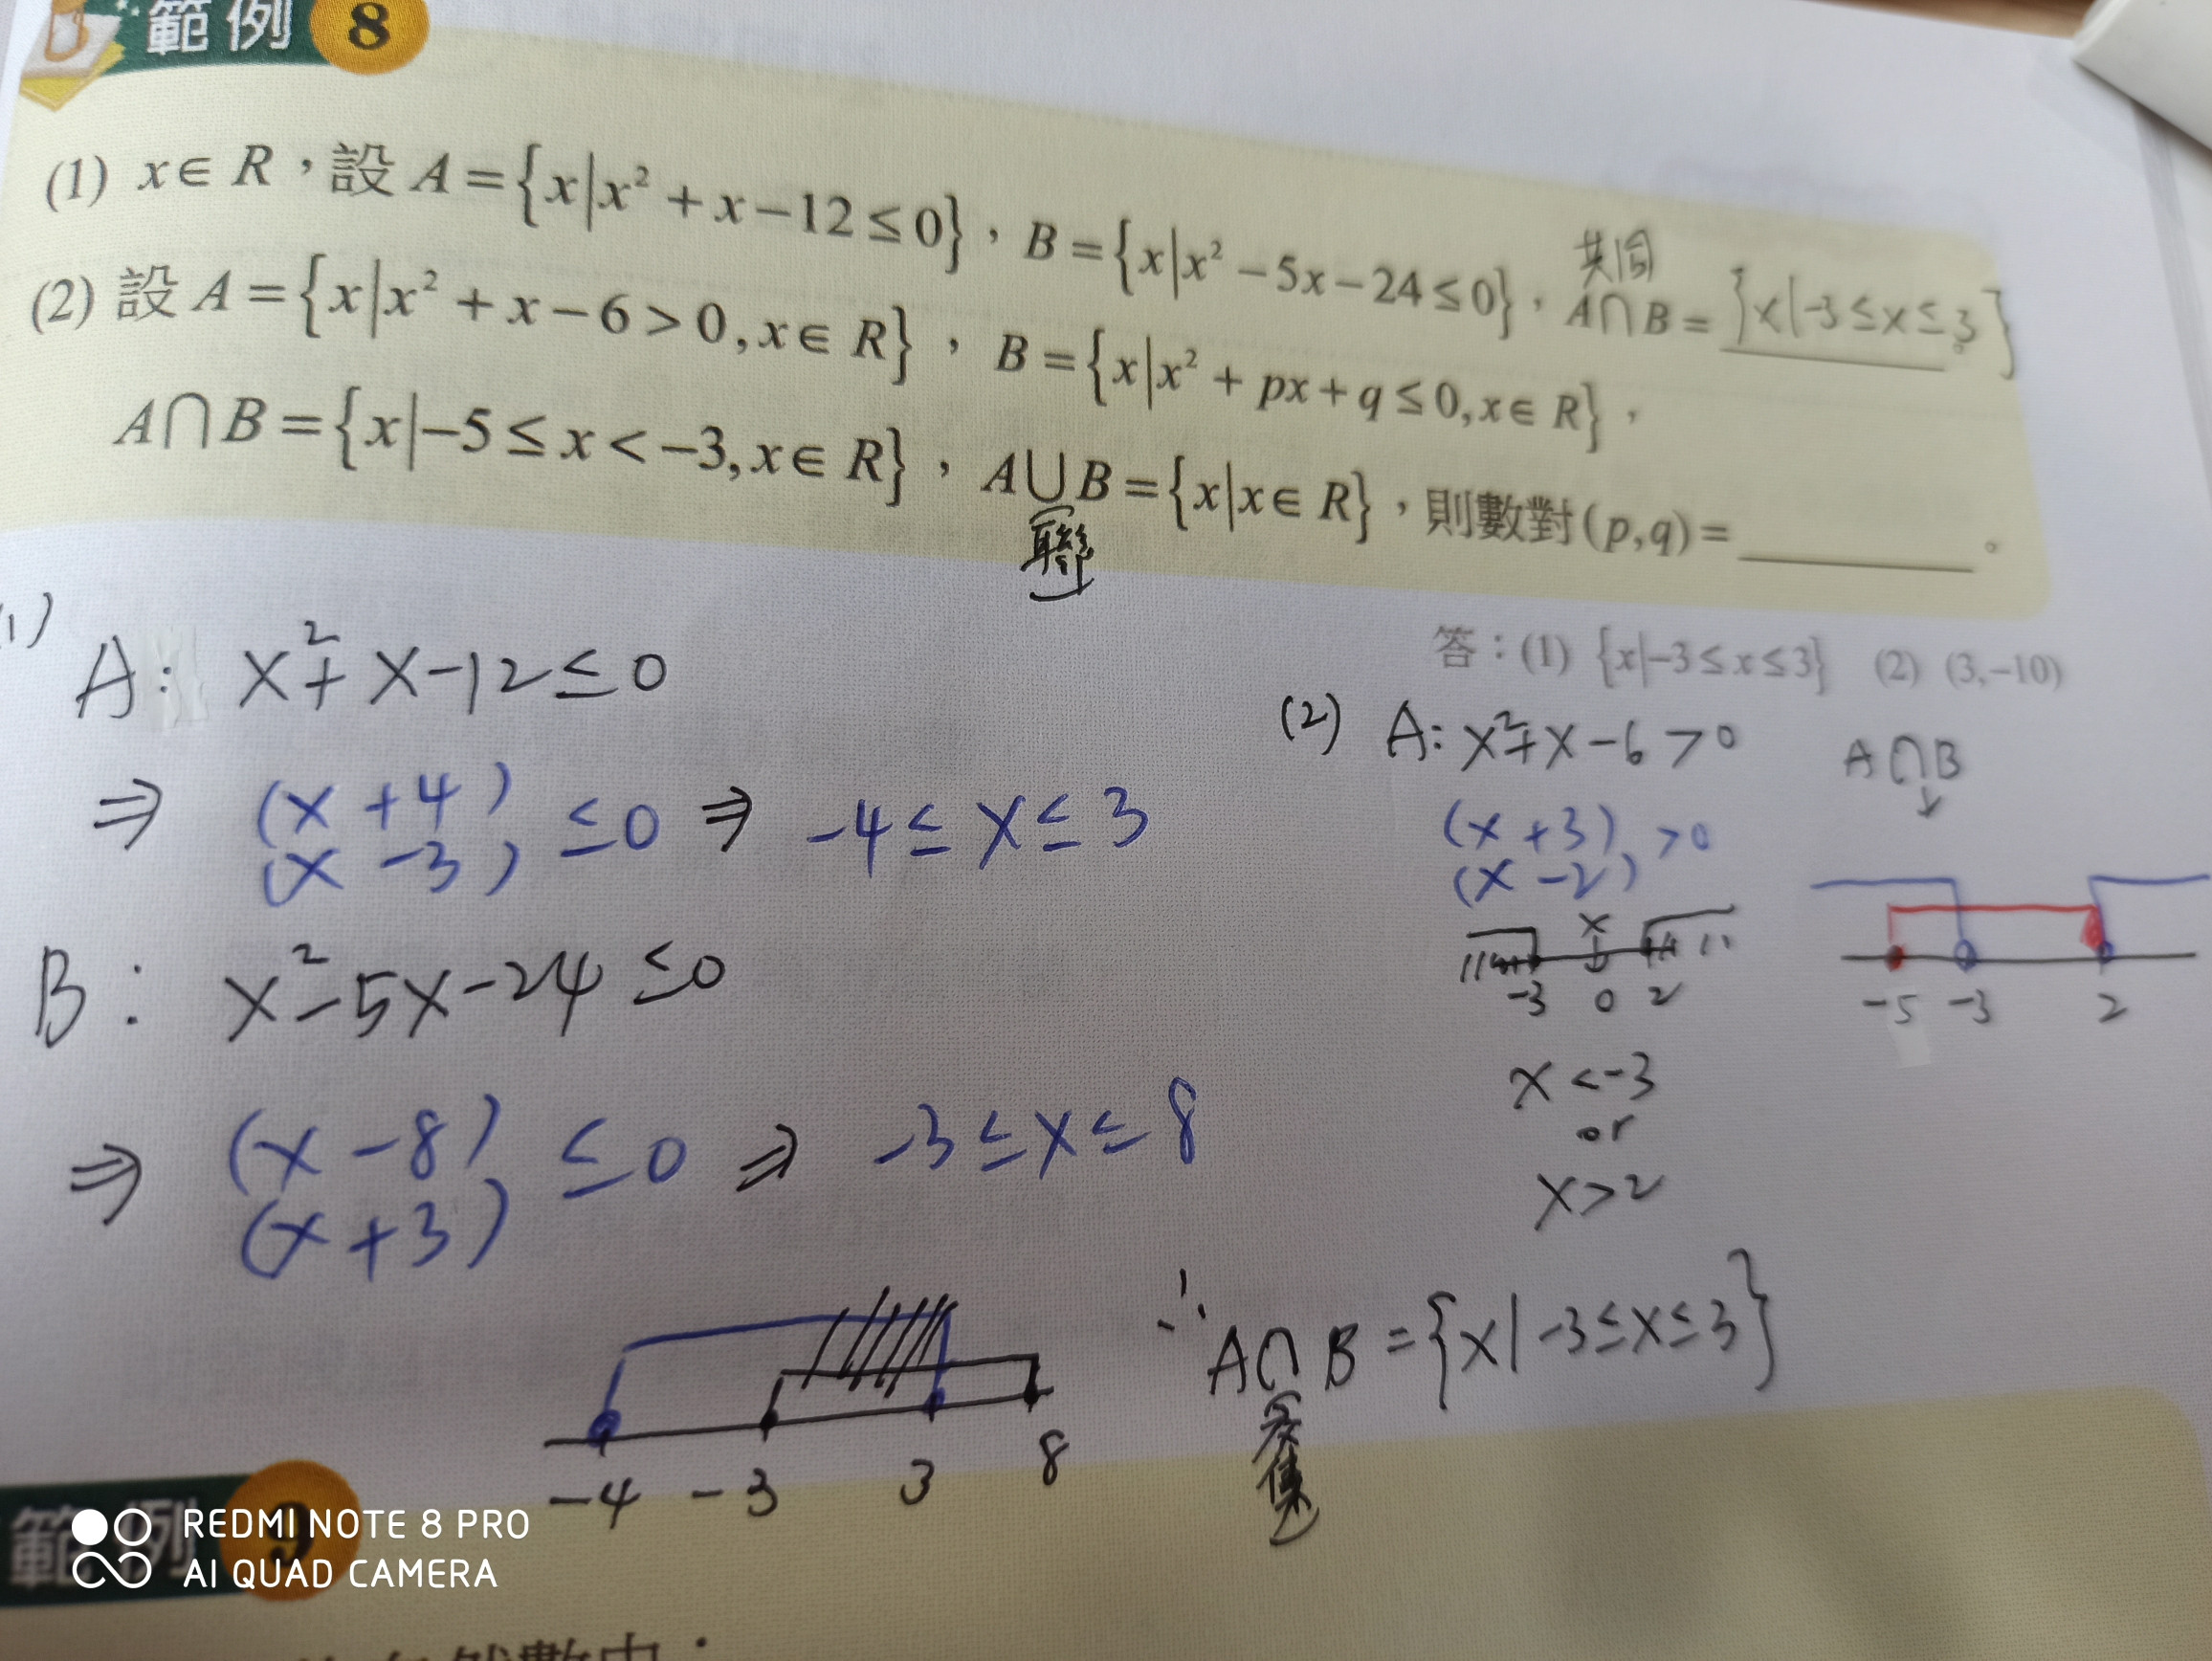 範例 8
(1) x∈R，設A={x|x²+x−12≤0}，B={x|x²−5x−24≤0}，A∩B= {x|-3≤x≤3}。
共同
(2) 設A={x|x²+x−6>0,x∈R}，B={x|x²+px+q≤0,x∈R}，
A∩B={x|−5≤x<−3,x∈R}，A∪B={x|x∈R}，則數對(p,q)= 。
聯
答：(1) {x|−3≤x≤3} (2) (3,−10)
(1)
A: x²+x-12≤0
⇒ (x+4)(x-3)≤0 ⇒ -4≤x≤3
B: x²-5x-24≤0
⇒ (x-8)(x+3)≤0 ⇒ -3≤x≤8
-4 -3 3 8
∴ A∩B={x|-3≤x≤3}
交集
(2) A: x²+x-6>0
(x+3)(x-2)>0
x
-3 0 2
x<-3
or
x>2
A∩B
↓
-5 -3 2
範例 9
REDMI NOTE 8 PRO
AI QUAD CAMERA